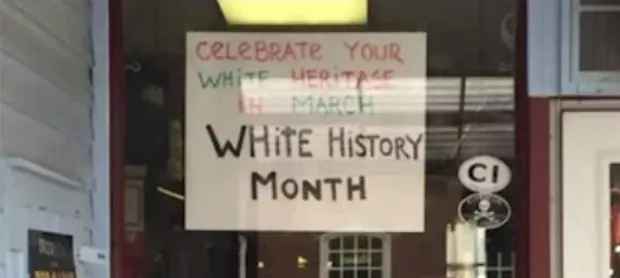 CELEBRATE YOUR
WHITE HERITAGE
IN MARCH
WHITE HISTORY
MONTH
CI